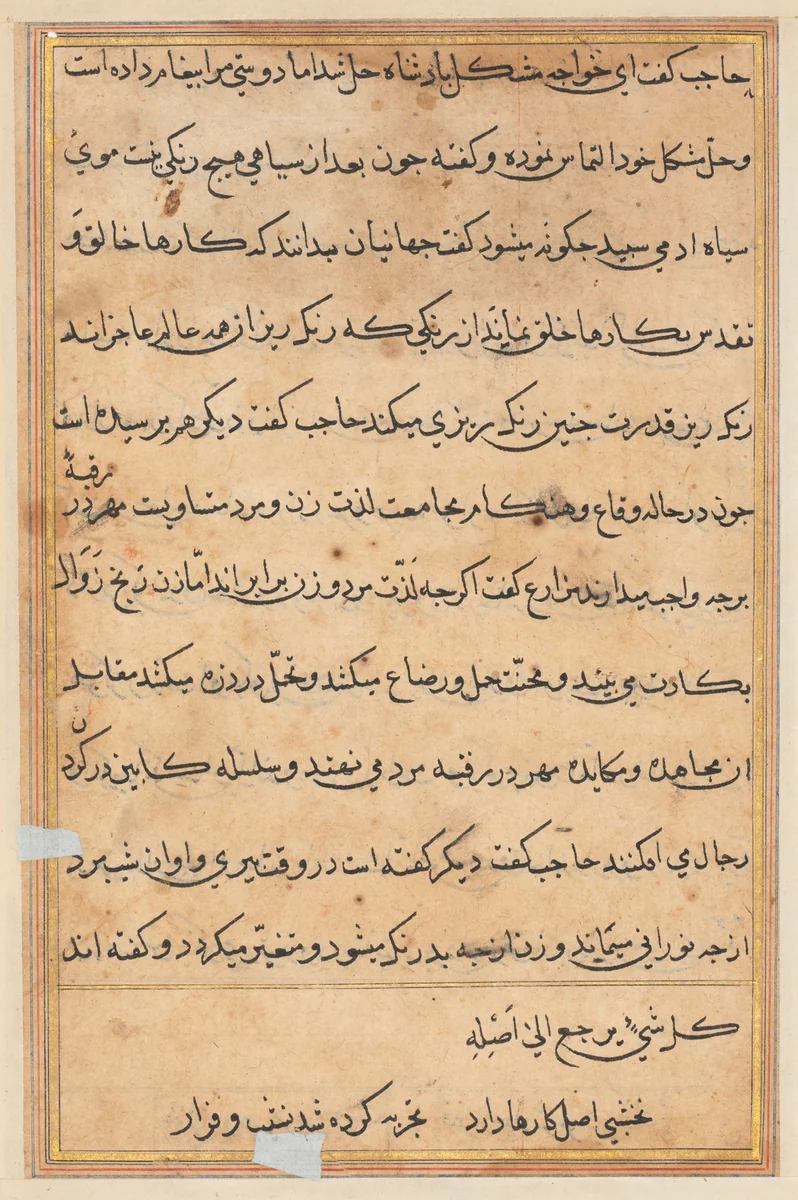 حاجب کفت ای خواجه مشکل بادشاه حل شد اما دوستی مرا بیغام داده است
و حلّ مشکل خود التماس نموده و کفته جون بعد از سیاهی هیج رنکی نیست موئ
سیاه ادمی سبید جکونه میشود کفت جهانیان بدانند که کارها خالق وَ
تقدس بکارها خلق نمایَد از رنکی که رنک ریزان همه عالم عاجزاند
رنک ریز قدرت جنین رنک ریزی میکند حاجب کفت دیکر هم برسیده است
جون در حاله وقاع و هنکام مجامعت لذت زن و مرد متساویست مهر در رقبهٔ
برجه واجب میدارند مزارع کفت اکرجه لَذّت مرد و زن برابر اند امّا زن رنج زَوَال
بکارت می بیند و محنّت حمل و رضاع میکشد و تحمّل درد زه میکند مقابل
ان مجاهده و مکایده مهر در رقبه مرد می نهند و سلسله کابین در کردن
رجال می افکنند حاجب کفت دیکر کفته است در وقت بیری و اوان شیب مرد
از جه نورانی میماند و زن از جه بدرنک میشود و متغیّر میکردد و کفته اند
کل شیءٍ یرجع الیٰ اَصْلِهِ
نخشبی اصل کارها دارد تجربه کرده شد نشیب و فراز